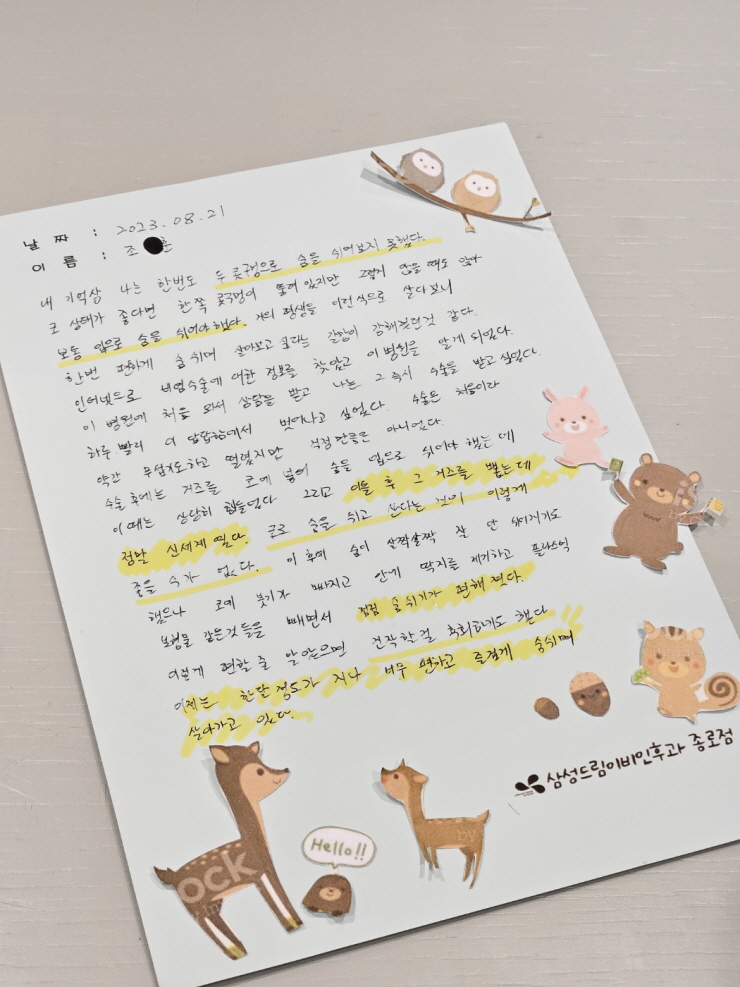 날 짜 : 2023.08.21
이 름 : 조 훈
내 기억상 나는 한번도 두 콧구멍으로 숨을 쉬어보지 못했다.
코 상태가 좋다면 한쪽 콧구멍이 뚫려 있지만 그렇지 않을 때도 많아
보통 입으로 숨을 쉬어야 했다. 거의 평생을 이런 식으로 살다보니
한번 편하게 숨 쉬며 살아보고 싶다는 갈망이 강해졌던것 같다.
인터넷으로 비염수술에 대한 정보를 찾았고 이 병원을 알게 되었다.
이 병원에 처음 와서 상담을 받고 나는 그 즉시 수술을 받고 싶었다.
하루 빨리 이 답답함에서 벗어나고 싶었다. 수술은 처음이라
약간 무섭기도하고 떨렸지만 걱정 만큼은 아니었다.
수술 후에는 거즈를 코에 넣어 숨을 입으로 쉬어야 했는데
이때는 상당히 힘들었다 그리고 이틀 후 그 거즈를 뽑는데
정말 신세계 였다. 코로 숨을 쉬고 산다는 것이 이렇게
좋을 수가 없다. 이 후에 숨이 살짝살짝 잘 안 쉬어지기도
했으나 코에 붓기가 빠지고 안에 딱지를 제거하고 플라스틱
보형물 같은것 들을 빼면서 점점 숨쉬기가 편해 졌다.
이렇게 편할 줄 알았으면 진작할걸 후회하기도 했다
이제는 한달 정도가 지나 너무 편하고 즐겁게 숨쉬며
살아가고 있다.
삼성드림이비인후과 종로점
Hello!!
ock
by